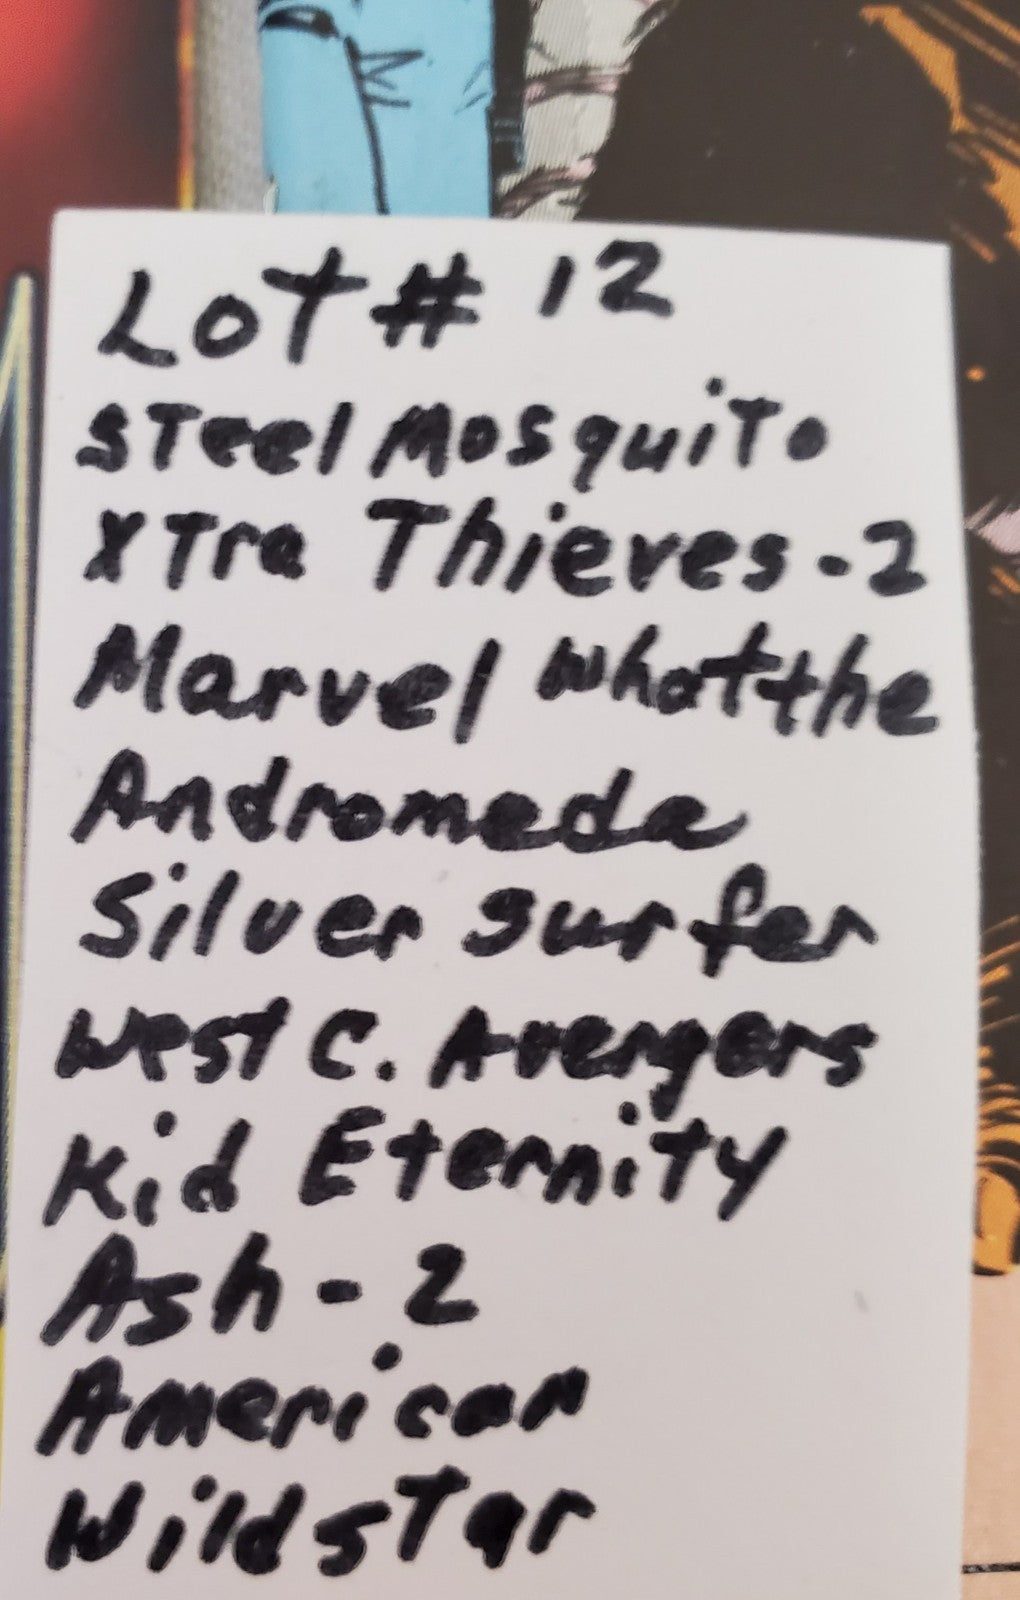 Lot # 12
Steel Mosquito
XTra Thieves - 2
Marvel what the
Andromeda
Silver surfer
West C. Avengers
Kid Eternity
Ash - 2
American
WildsTar